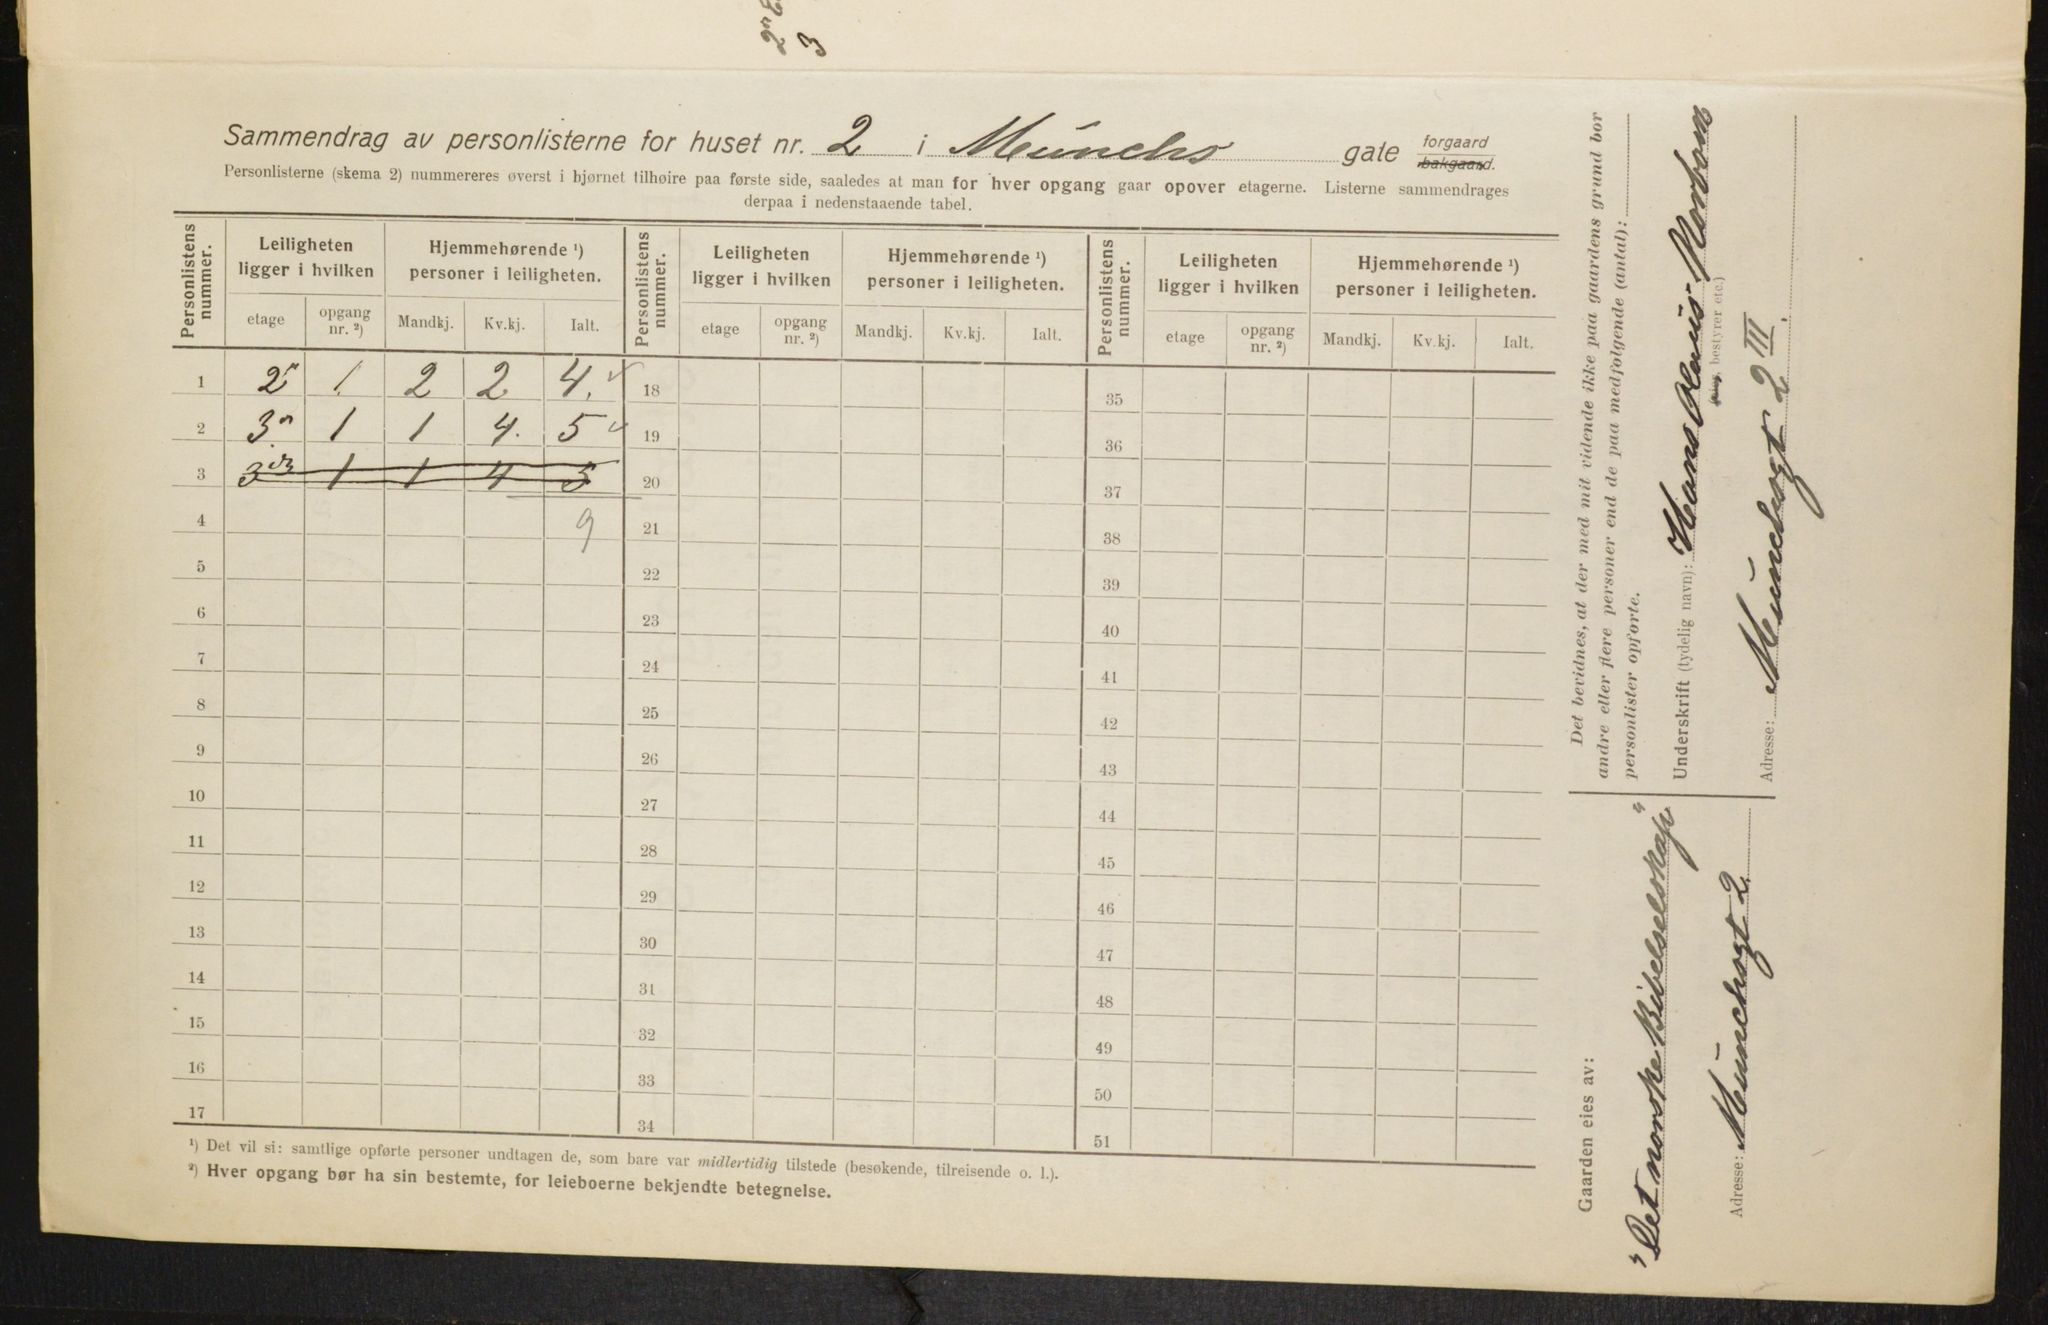 2n
3
Sammendrag av personlisterne for huset nr. 2 i Münchs gate forgaard
bakgaard.
Personlisterne (skema 2) nummereres øverst i hjørnet tilhøire paa første side, saaledes at man for hver opgang gaar opover etagerne. Listerne sammendrages
derpaa i nedenstaaende tabel.
Personlistens nummer. Leiligheten ligger i hvilken Hjemmehørende ¹) personer i leiligheten. Personlistens nummer. Leiligheten ligger i hvilken Hjemmehørende ¹) personer i leiligheten. Personlistens nummer. Leiligheten ligger i hvilken Hjemmehørende ¹) personer i leiligheten.
etage opgang nr. ²) Mandkj. Kv.kj. Ialt. etage opgang nr. ²) Mandkj. Kv.kj. Ialt. etage opgang nr. ²) Mandkj. Kv.kj. Ialt.
1 2n 1. 2 2 4. 18 35
2 3n 1 1 4. 5 19 36
3 3 1 1 4 5 20 37
4 9 21 38
5 22 39
6 23 40
7 24 41
8 25 42
9 26 43
10 27 44
11 28 45
12 29 46
13 30 47
14 31 48
15 32 49
16 33 50
17 34 51
¹) Det vil si: samtlige opførte personer undtagen de, som bare var midlertidig tilstede (besøkende, tilreisende o. l.).
²) Hver opgang bør ha sin bestemte, for leieboerne bekjendte betegnelse.
Det bevidnes, at der med mit vidende ikke paa gaardens grund bor
andre eller flere personer end de paa medfølgende (antal):
personlister opførte.
Underskrift (tydelig navn): Hans Olaus Norbom
bestyrer etc.)
Adresse: Münchsgt 2 III.
Gaarden eies av:
"Det norske Bibelselskap"
Adresse: Münchsgt 2.